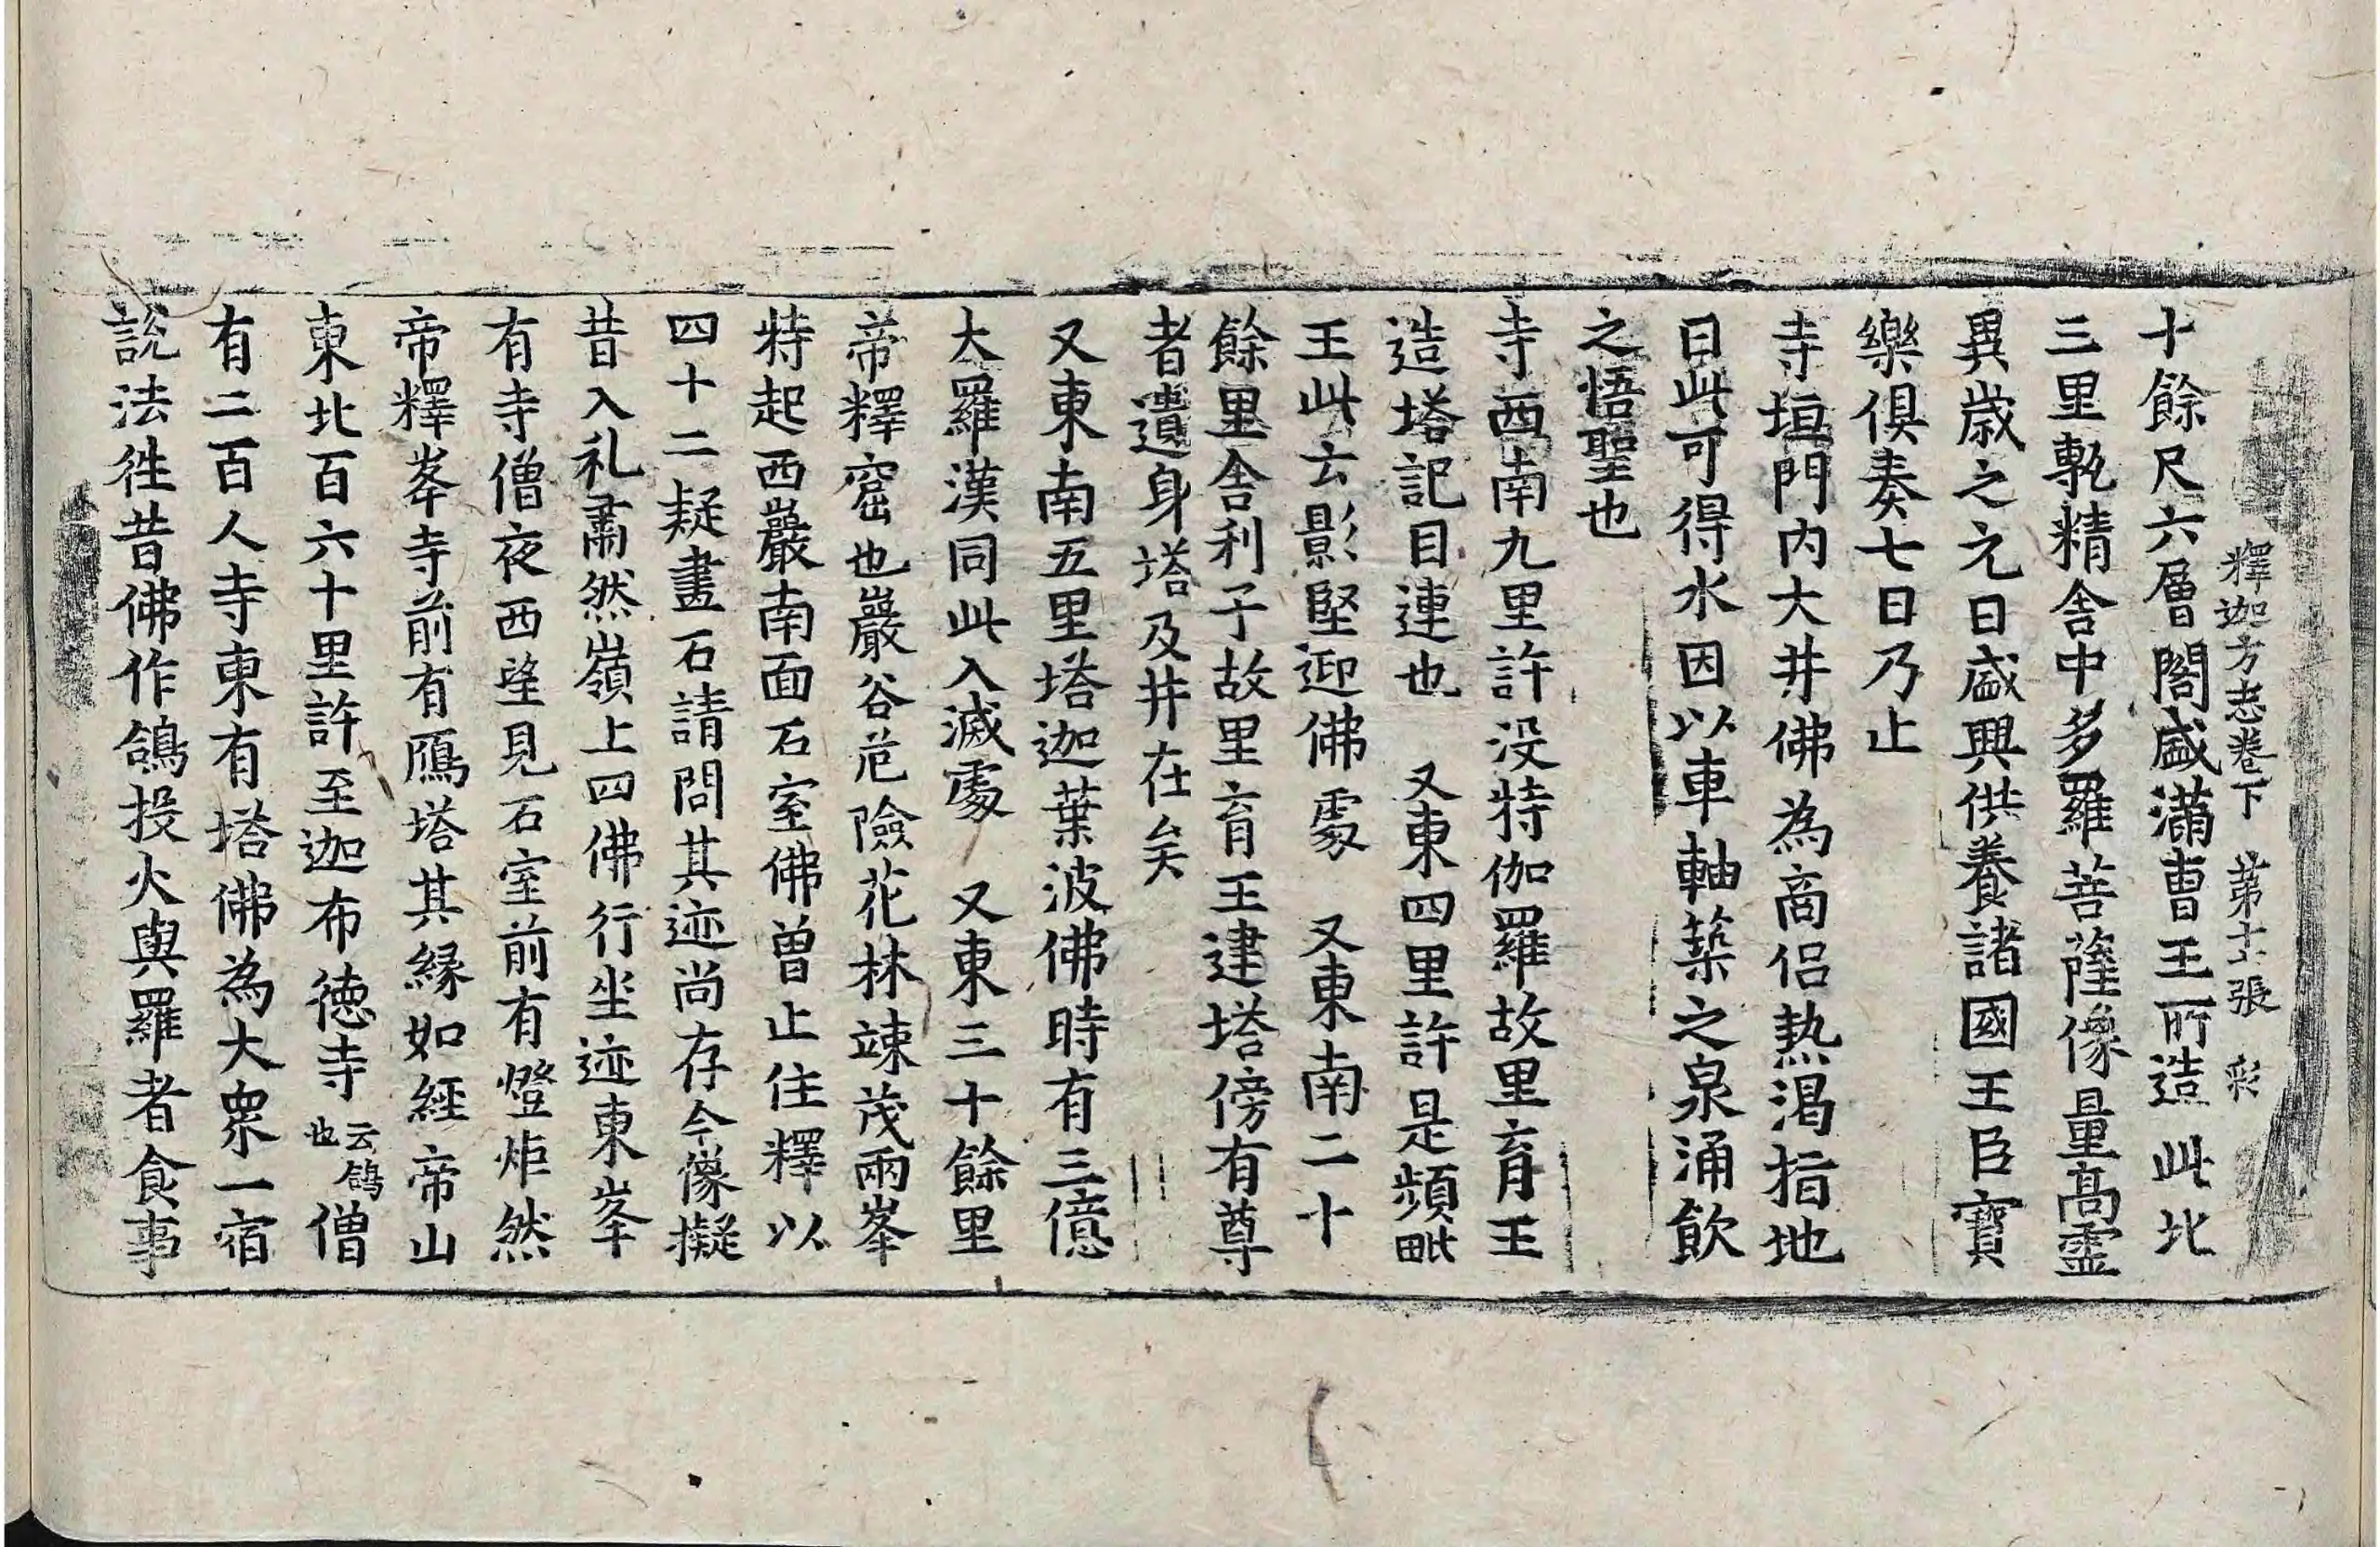 釋迦方志卷下 第十二張 彩
十餘尺六層閣盛滿曺王所造此北
三里甎精舍中多羅菩薩像量髙靈
異歲之元日盛興供養諸國王臣寶
樂俱奏七日乃止
寺垣門內大井佛為商侣熱渴指地
曰此可得水因以車軸築之泉涌飲
之悟聖也
寺西南九里許没特伽羅故里育王
造塔記目連也 又東四里許是頻毗
王此云影堅迎佛處 又東南二十
餘里舍利子故里育王建塔傍有尊
者遺身塔及井在矣
又東南五里塔迦葉波佛時有三億
大羅漢同此入滅處 又東三十餘里
帝釋窟也巖谷危險花林竦茂兩峯
特起西巖南面石室佛曾止住釋以
四十二疑畫石請問其迹尚存今像擬
昔入礼肅然嶺上四佛行坐迹東峯
有寺僧夜西望見石室前有燈炬然
帝釋峯寺前有鴈塔其縁如經帝山
東北百六十里許至迦布德寺云鴿也僧
有二百人寺東有塔佛為大衆一宿
說法徃昔佛作鴿投火與羅者食事